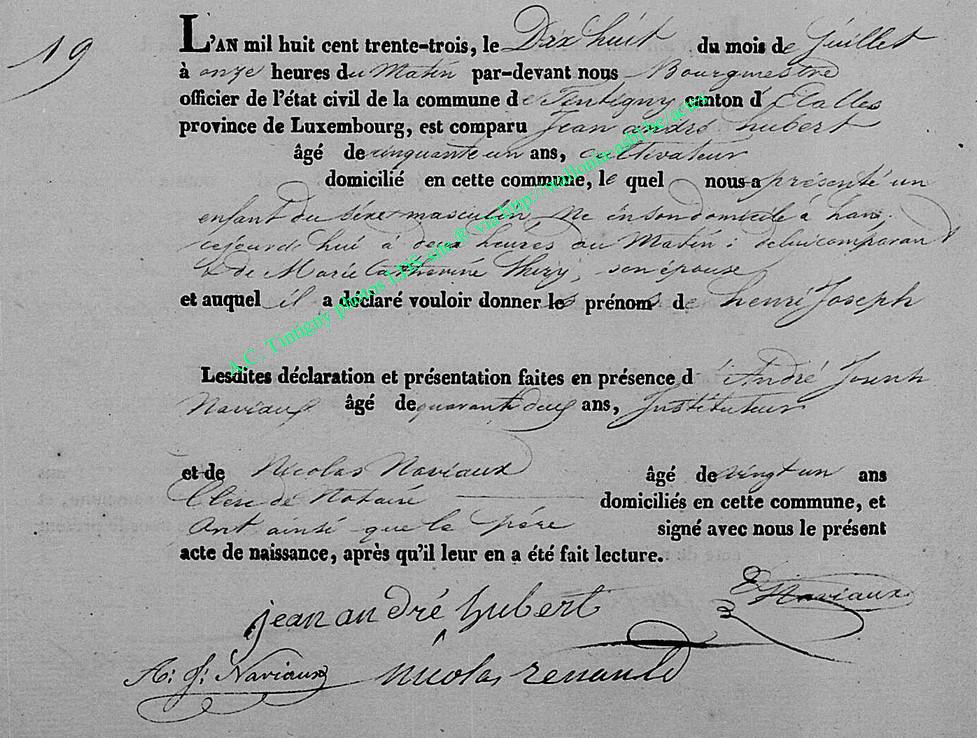 19
L'AN mil huit cent trente-trois, le Dix huit du mois de Juillet
à onze heures du Matin par-devant nous Bourgmestre
officier de l'état civil de la commune de Tintigny canton d'Etalles
province de Luxembourg, est comparu Jean andré hubert
âgé de cinquante un ans, cultivateur
domicilié en cette commune, le quel nous a présenté un
enfant du séxe masculin, Né en son domicile à han.
cejourdehui à deux heures du Matin : de lui comparant
& de Marie Catherine thiry, son épouse
et auquel il a déclaré vouloir donner les prénoms de henri Joseph
Lesdites déclaration et présentation faites en présence d'André Joseph
Naviaux âgé de quarante deux ans, Instituteur
et de Nicolas Naviaux âgé de vingt un ans
Clerc de Notaire domiciliés en cette commune, et
ont ainsi que le père signé avec nous le présent
acte de naissance, après qu'il leur en a été fait lecture.
jean andré hubert
Naviaux
A: J: Naviaux
nicolas renauld
A.C. Tintigny photos LDS site ® via http://wallonia-asbl.be/actes